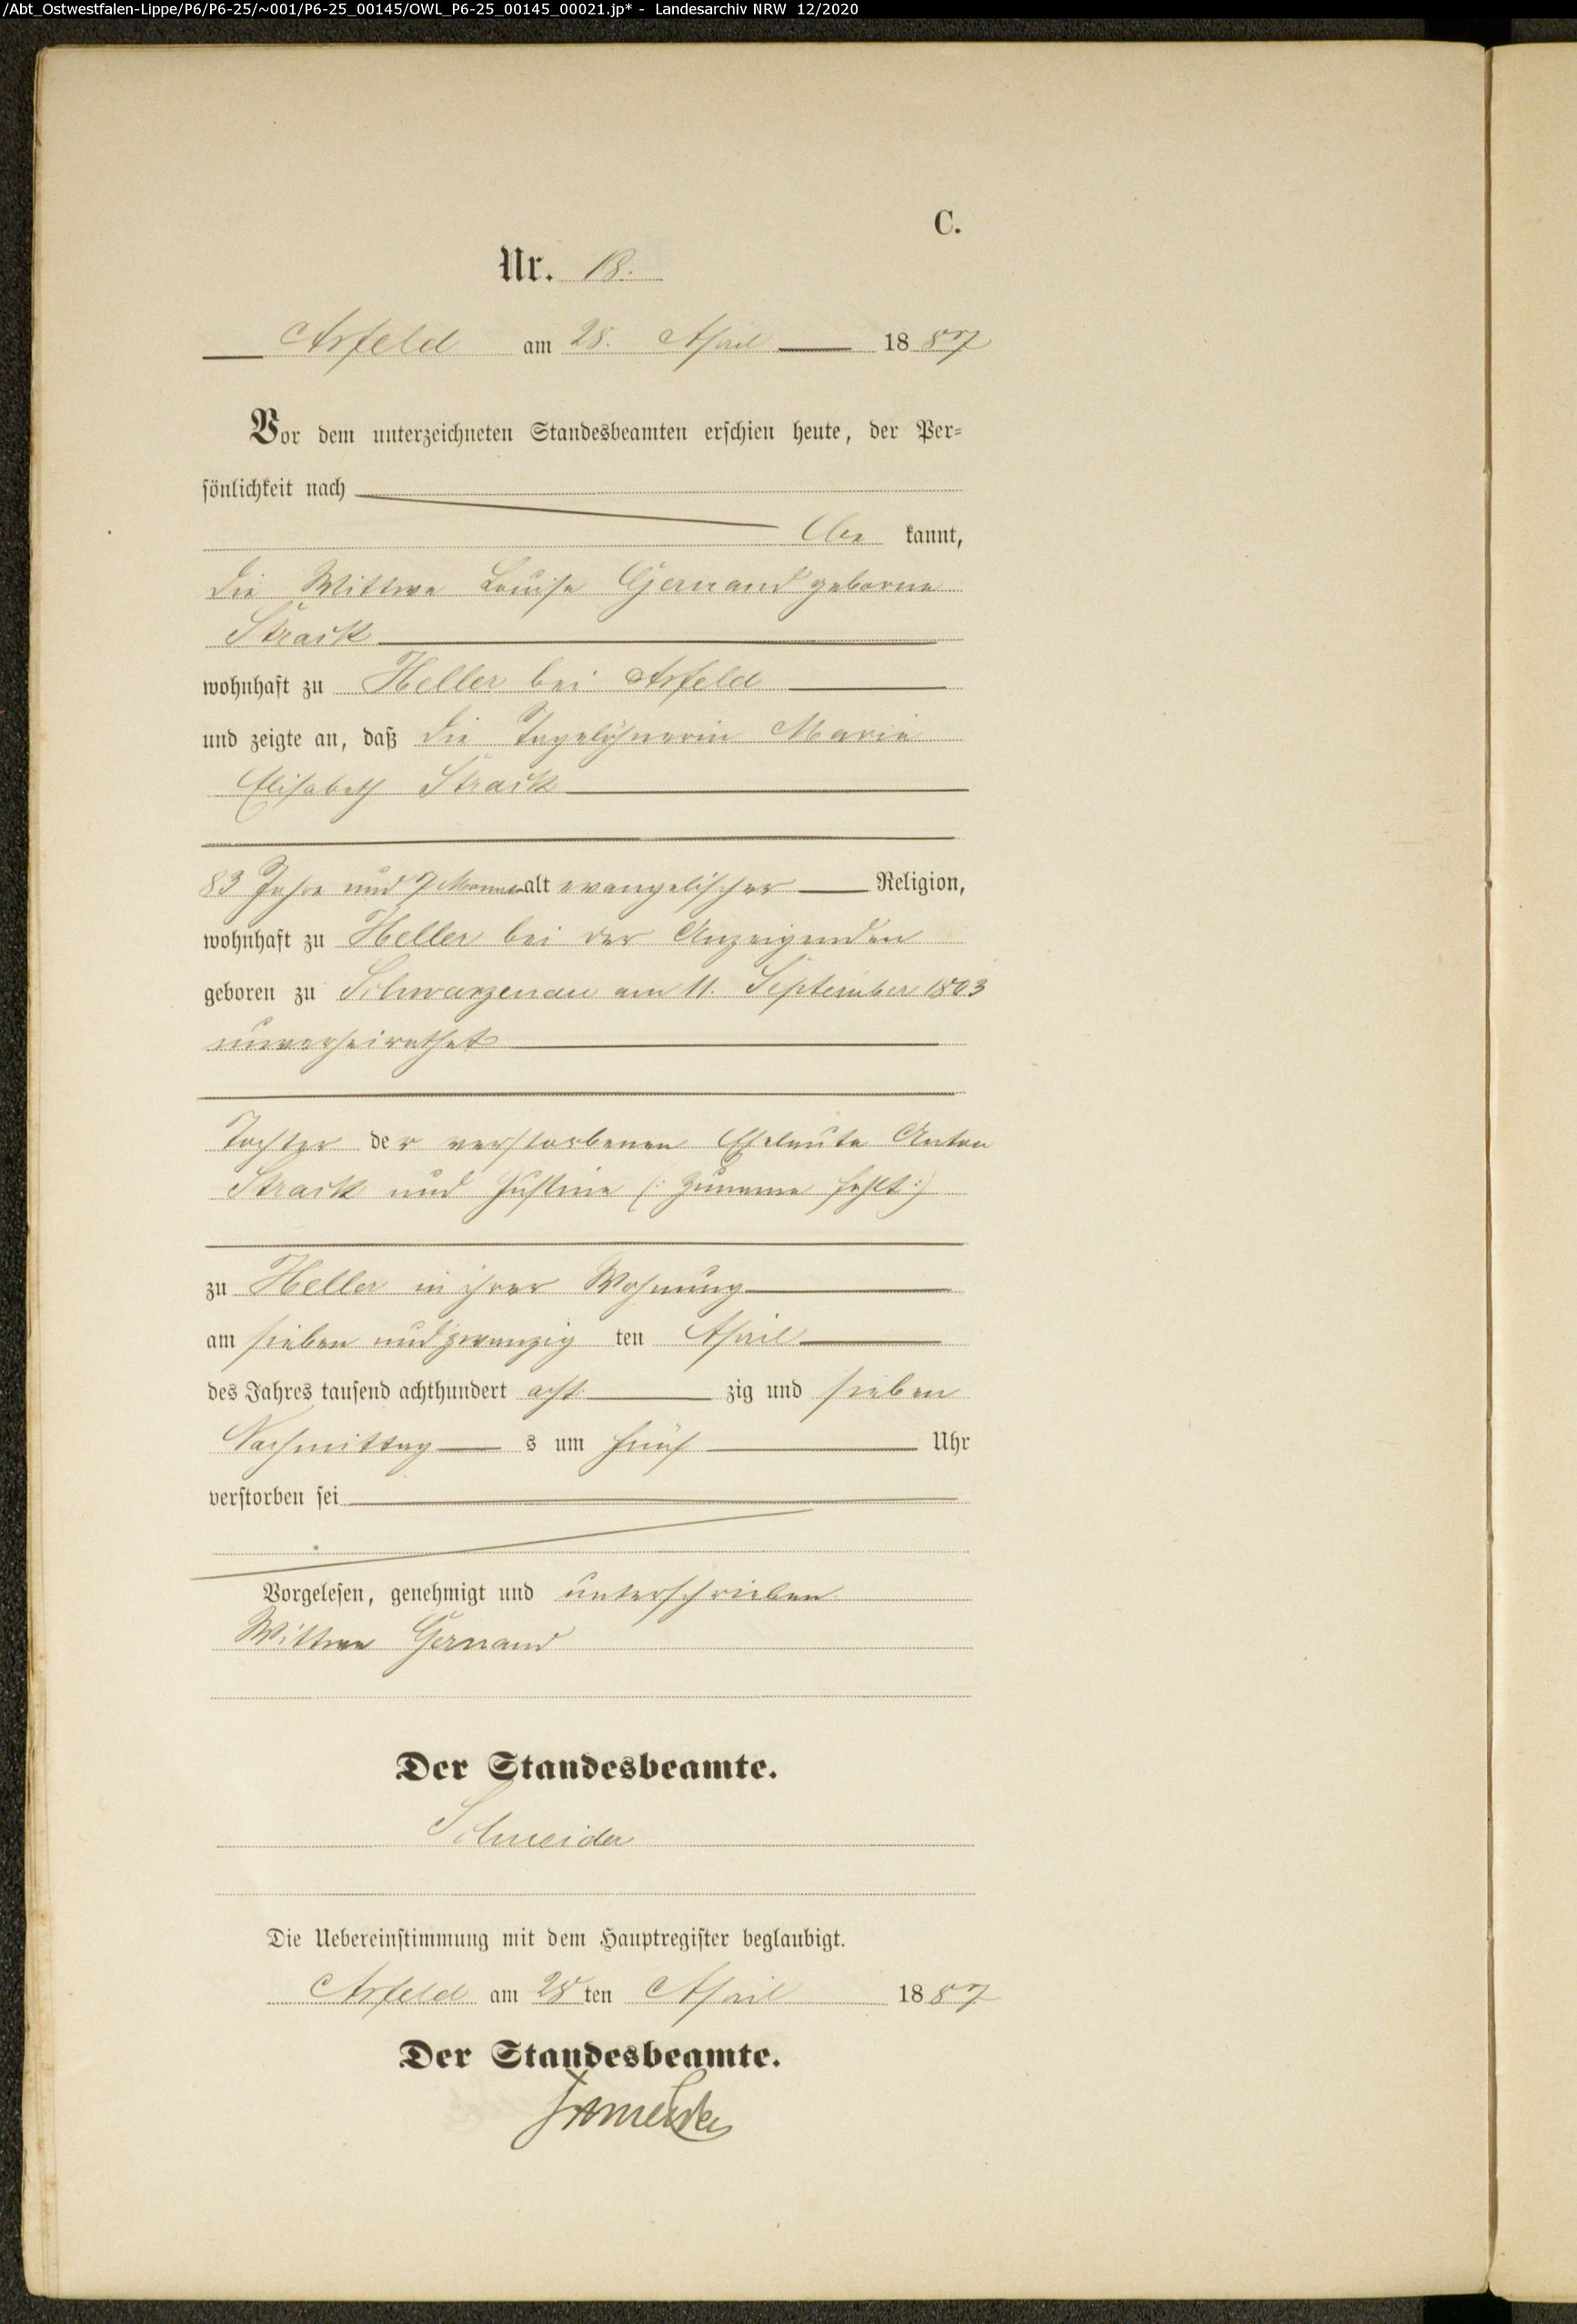 /Abt_Ostwestfalen-Lippe/P6/P6-25/~001/P6-25_00145/OWL_P6-25_00145_00021.jp* - Landesarchiv NRW 12/2020
C.
Nr. 18.
Arfeld am 28. April 1887
Vor dem unterzeichneten Standesbeamten erschien heute, der Per-
sönlichkeit nach
be kannt,
die Wittwe Louise Gernand geborne
Strack
wohnhaft zu Heller bei Arfeld
und zeigte an, daß die Tagelöhnerin Marie
Elisabeth Strack
83 Jahre und 7 Monate alt evangelischer Religion,
wohnhaft zu Heller bei der Anzeigenden
geboren zu Schwarzenau am 11. September 1803
unverheirathet
Tochter der verstorbenen Eheleute Anton
Strack und Justine (: Zuname fehlt :)
zu Heller in ihrer Wohnung
am sieben und zwanzig ten April
des Jahres tausend achthundert acht zig und sieben
Nachmittag s um fünf Uhr
verstorben sei
Vorgelesen, genehmigt und unterschrieben
Wittwe Gernand
Der Standesbeamte.
Schneider
Die Uebereinstimmung mit dem Hauptregister beglaubigt.
Arfeld am 28 ten April 1887
Der Standesbeamte.
Schneider